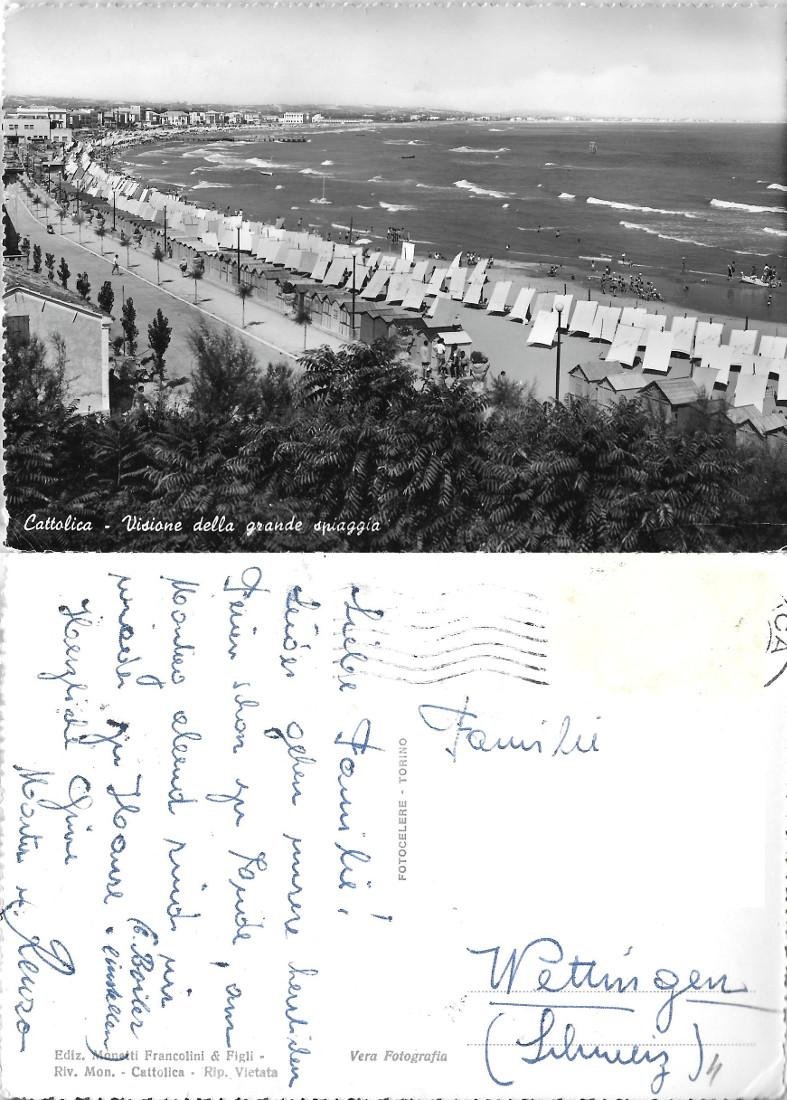 Cattolica - Visione della grande spiaggia
Liebe Familie!
Leider gehen unsere herrlichen
Ferien schon zu Ende, am
Montag abend sind wir
wieder zu Hause. (E. Boiler
einstellen)
Herzliche Grüsse
Martin u. Renza
FOTOCELERE - TORINO
CA
Familie
Wettingen
(Schweiz)
Ediz. Monetti Francolini & Figli -
Riv. Mon. - Cattolica - Rip. Vietata
Vera Fotografia